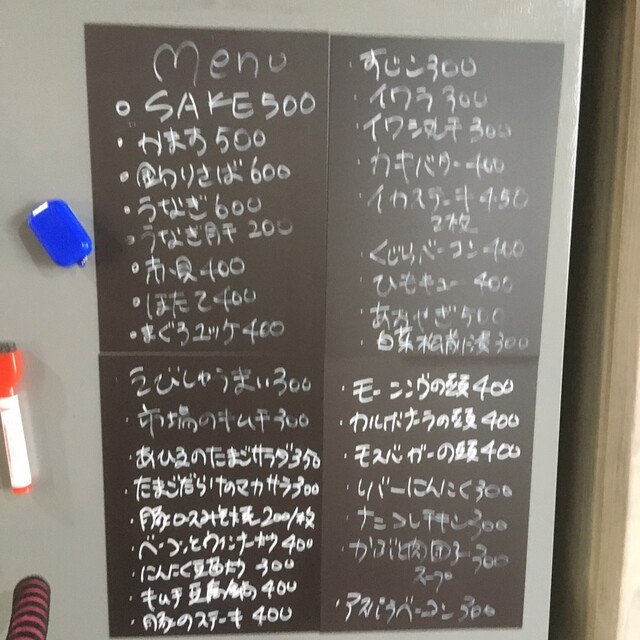 Menu
SAKE 500
かます 500
金カリさば 600
うなぎ 600
うなぎ肝 200
赤貝 400
ほたて 400
まぐろユッケ 400
すじこ 300
イクラ 300
イワシ丸干 300
カキバター 400
イカステーキ 450
2枚
くじらベーコン 400
ひもキュー 400
あおやぎ 500
白菜松前漬 300
えびしゅうまい 300
市場のキムチ 300
あひるのたまごサラダ 350
たまごだらけのマカサラ 300
豚ロースみそ焼 200/枚
ベーコンとウインナーポウ 400
にんにく豆苗炒 300
キムチ豆腐鍋 400
豚のステーキ 400
モーニングの頭 400
カルボナーラの頭 400
モスバーガーの頭 400
レバーにんにく 300
ナンコレチキン 300
かぶと肉団子 300
スープ
アスパラベーコン 300